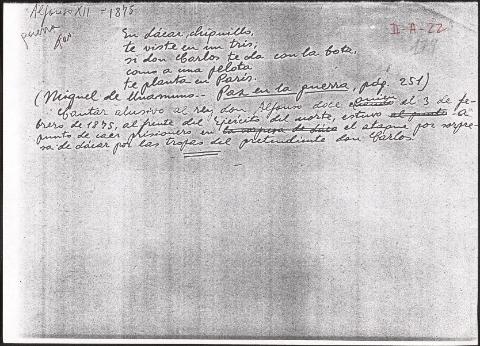 Alfonso XII - 1875
guerra
II-A-22
En Lácar, chiquillo,
te viste en un tris;
si don Carlos te da con la bota,
como a una pelota
te planta en París.
(Miguel de Unamuno.- Paz en la guerra, pág. 251)
Cantar alusivo al rey don Alfonso doce quien el 3 de fe-
brero de 1875, al frente del Ejército del norte, estuvo al punto a
punto de caer prisionero en la sorpresa de Lácar el ataque por sorpre-
sa de Lácar por las tropas del pretendiente don Carlos.